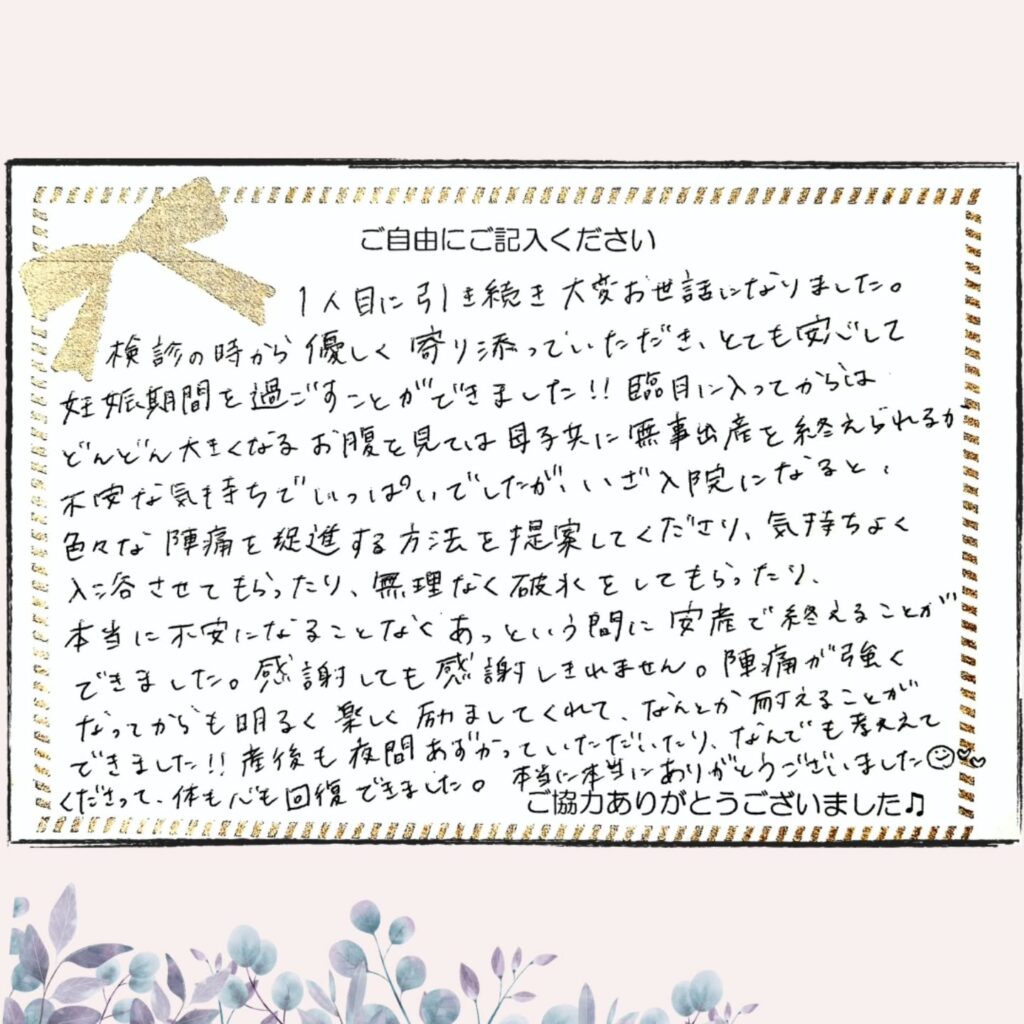 ご自由にご記入ください
1人目に引き続き大変お世話になりました。
検診の時から優しく寄り添っていただき、とても安心して
妊娠期間を過ごすことができました!!臨月に入ってからは
どんどん大きくなるお腹を見ては母子共に無事出産を終えられるか
不安な気持ちでいっぱいでしたが、いざ入院になると、
色々な陣痛を促進する方法を提案してくださり、気持ちよく
入浴させてもらったり、無理なく破水をしてもらったり、
本当に不安になることなくあっという間に安産で終えることが
できました。感謝しても感謝しきれません。陣痛が強く
なってからも明るく楽しく励ましてくれて、なんとか耐えることが
できました!!産後も夜間あずかっていただいたり、なんでも考えて
くださって、体も心も回復できました。本当に本当にありがとうございました
ご協力ありがとうございました♫